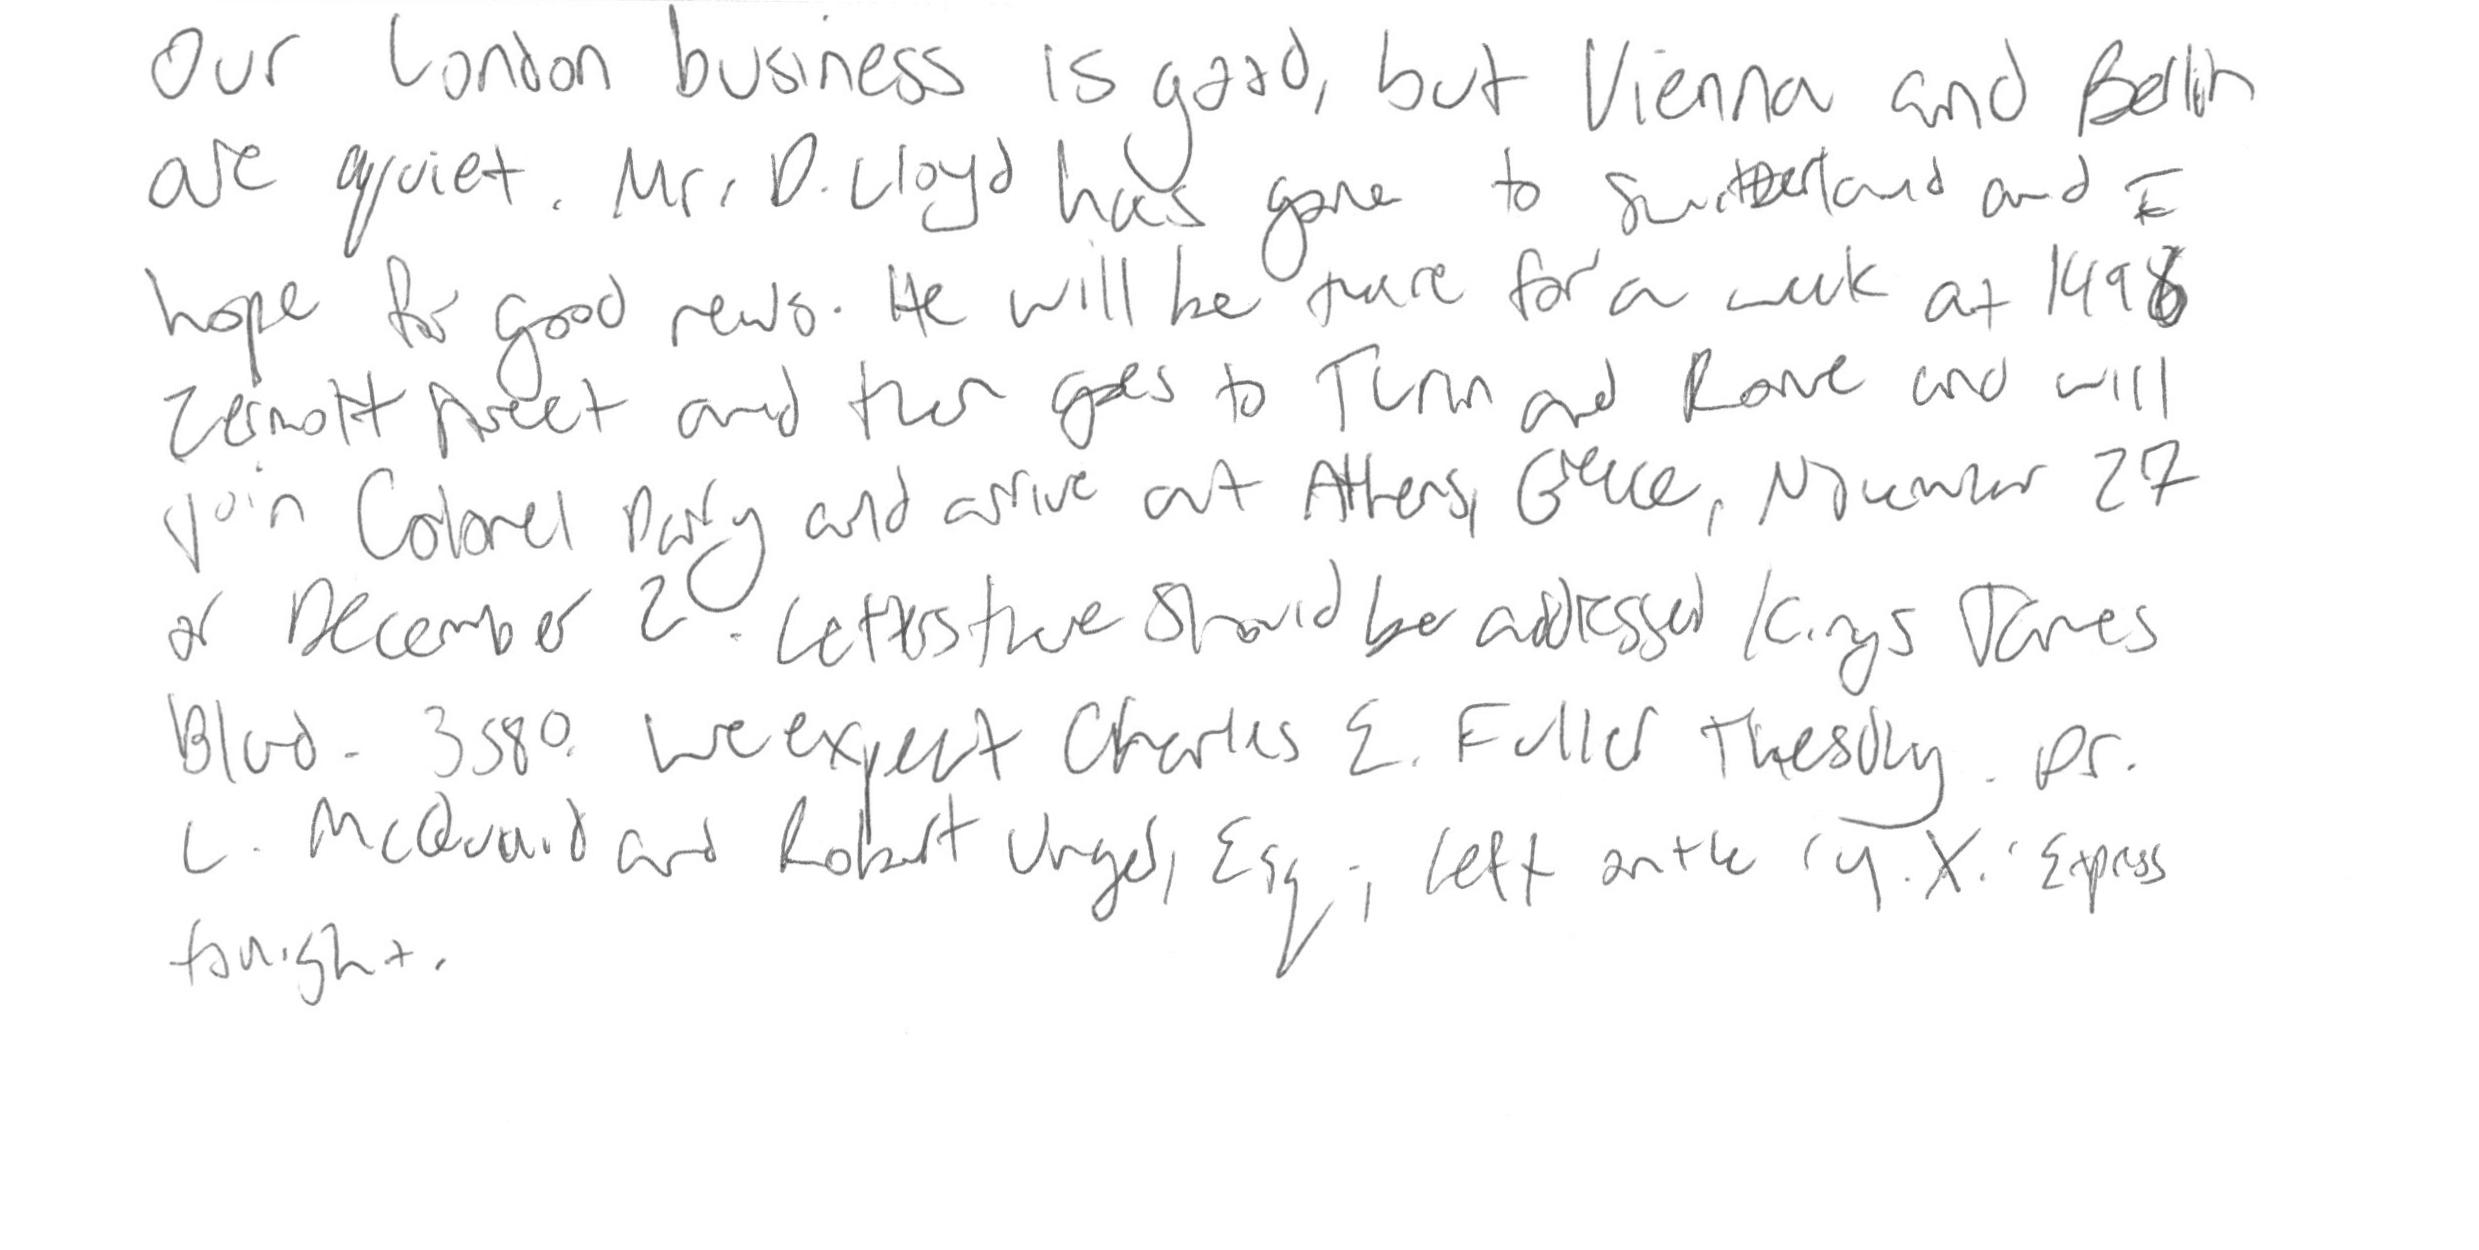 Our London business is good, but Vienna and Berlin
are quiet. Mr. D. Lloyd has gone to Switzerland and I
hope for good news. He will be there for a week at 1496
Zermott Street and then goes to Turin and Rome and will
join Colonel Parry and arrive at Athens, Greece, November 27
or December 2. Letters there should be addressed Kings James
Blvd. 3580. We expect Charles E. Fuller Tuesday. Dr.
L. McQuaid and Robert Unger, Esq., left on the 'Y.X.' Express
tonight.